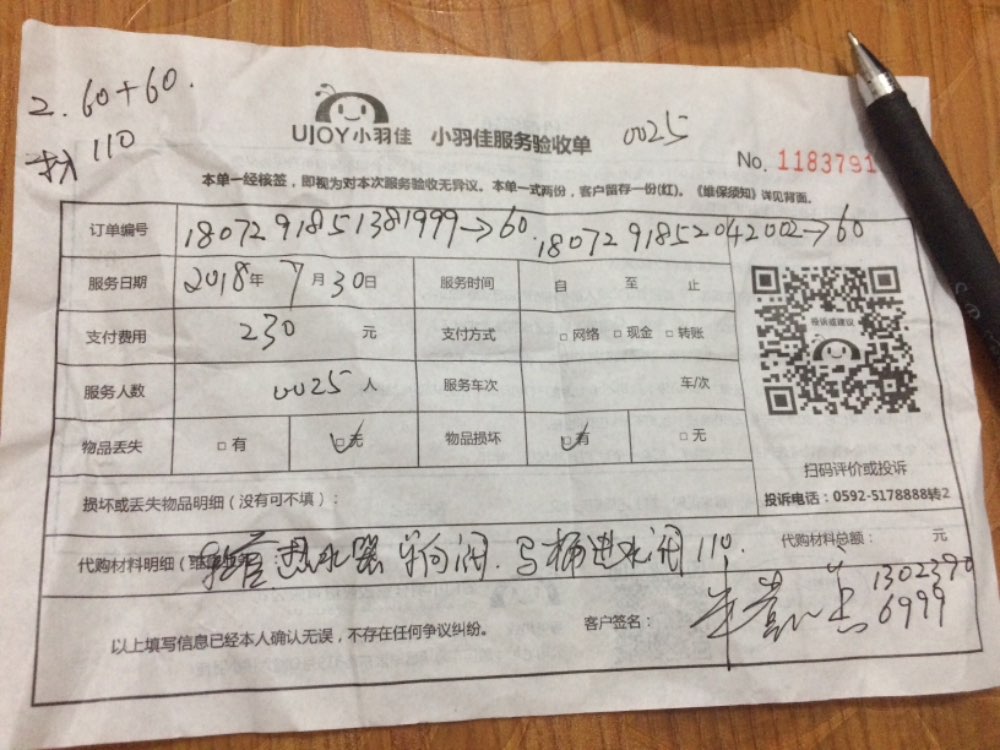 2. 60+60.
110
UJOY小羽佳 小羽佳服务验收单 0025
No. 1183791
本单一经核签，即视为对本次服务验收无异议。本单一式两份，客户留存一份(红)。《维保须知》详见背面。
订单编号 1807291851381999→60. 1807291852042002→60
服务日期 2018年 7月30日 服务时间 自 至 止
支付费用 230 元 支付方式 □网络 □现金 □转账
投诉或建议
服务人数 0025人 服务车次 车/次
物品丢失 □有 □无 物品损坏 □有 □无
扫码评价或投诉
投诉电话：0592-5178888转2
损坏或丢失物品明细（没有可不填）：
代购材料明细 热水器 单向阀. 马桶进水阀 110.
代购材料总额： 元
1302390
6999
以上填写信息已经本人确认无误，不存在任何争议纠纷。 客户签名：